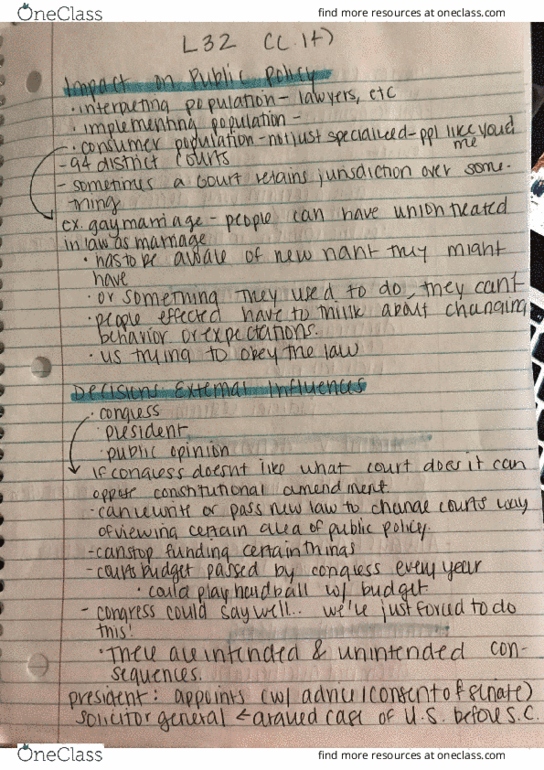 OneClass
find more resources at oneclass.com
L32
Impact on Public Policy
· interpreting population - lawyers, etc
· implementing population -
· consumer population - not just specialized - ppl like you &
me
- 94 district courts
- sometimes a court retains jurisdiction over some-
thing
ex. gay marriage - people can have union treated
in law as marriage
· has to be aware of new they might
have
· or something they used to do, they can't
· people effected have to think about changing
behavior or expectations.
· us trying to obey the law
Decisions External Influences
· congress
· president
· public opinion
if congress doesnt like what court does it can
constitutional amendment.
- can rewrite or pass new law to change courts way
of viewing certain area of public policy.
- can stop funding certain things
- courts budget passed by congress every year
· could play hardball w/ budget
- congress could say well.. we're just forced to do
this!
· There are intended & unintended con-
sequences.
president: appoints (w/ advice/consent of senate)
solicitor general < argued case of U.S. before S.C.
OneClass
find more resources at oneclass.com